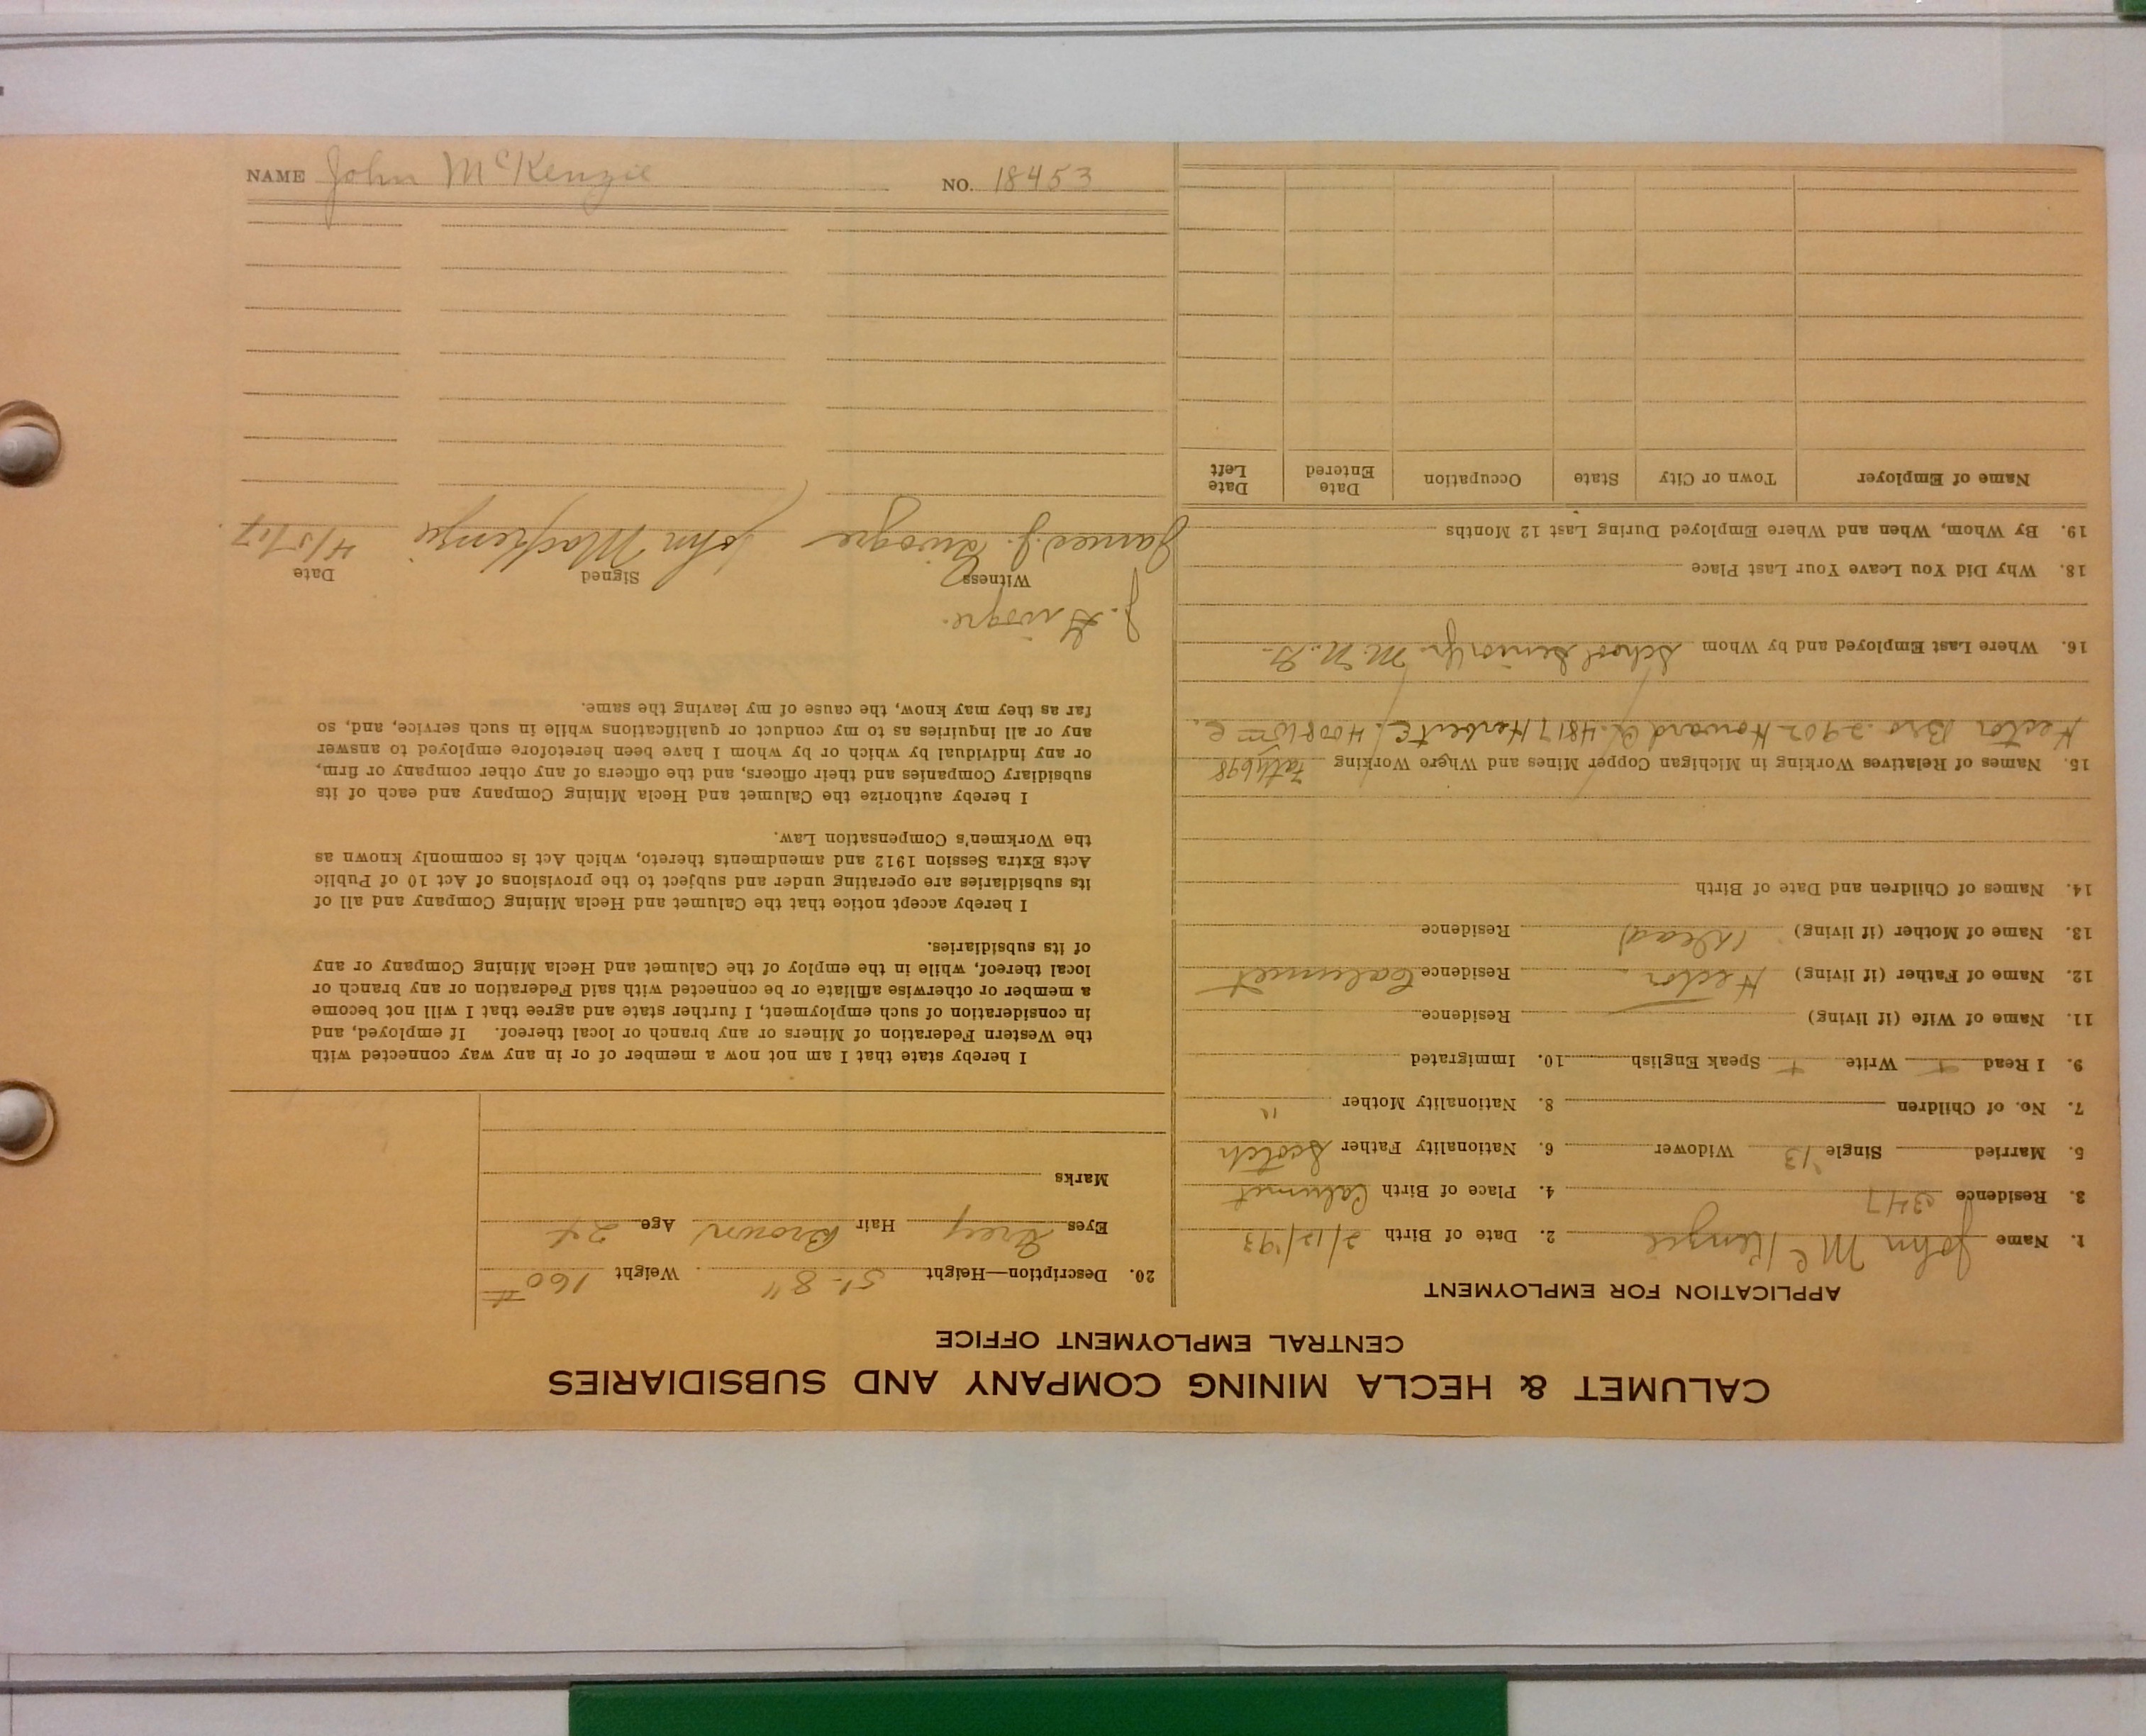 NAME John McKenzie NO. 18453
CALUMET & HECLA MINING COMPANY AND SUBSIDIARIES
CENTRAL EMPLOYMENT OFFICE
APPLICATION FOR EMPLOYMENT
1. Name John McKenzie 2. Date of Birth 2/12/93
3. Residence 347 4. Place of Birth Calumet
5. Married Single Widower 6. Nationality Father Scotch
7. No. of Children 8. Nationality Mother "
9. I Read + Write + Speak English 10. Immigrated
11. Name of Wife (if living) Residence
12. Name of Father (if living) Hector Residence Calumet
13. Name of Mother (if living) (Dead) Residence
14. Names of Children and Date of Birth
15. Names of Relatives Working in Michigan Copper Mines and Where Working
Hector Bro. 2902 Howard 4817 Herbert C. 4008
16. Where Last Employed and by Whom School Senior Yr. M.
18. Why Did You Leave Your Last Place
19. By Whom, When and Where Employed During Last 12 Months
Name of Employer Town or City State Occupation Date Entered Date Left
20. Description—Height 5'-8" Weight 160#
Eyes Grey Hair Brown Age 24
Marks
I hereby state that I am not now a member of or in any way connected with
the Western Federation of Miners or any branch or local thereof. If employed, and
in consideration of such employment, I further state and agree that I will not become
a member or otherwise affiliate or be connected with said Federation or any branch or
local thereof, while in the employ of the Calumet and Hecla Mining Company or any
of its subsidiaries.
I hereby accept notice that the Calumet and Hecla Mining Company and all of
its subsidiaries are operating under and subject to the provisions of Act 10 of Public
Acts Extra Session 1912 and amendments thereto, which Act is commonly known as
the Workmen's Compensation Law.
I hereby authorize the Calumet and Hecla Mining Company and each of its
subsidiary Companies and their officers, and the officers of any other company or firm,
or any individual by which or by whom I have been heretofore employed to answer
any or all inquiries as to my conduct or qualifications while in such service, and, so
far as they may know, the cause of my leaving the same.
J.
Witness Signed Date
James J. John MacKenzie 4/5/17